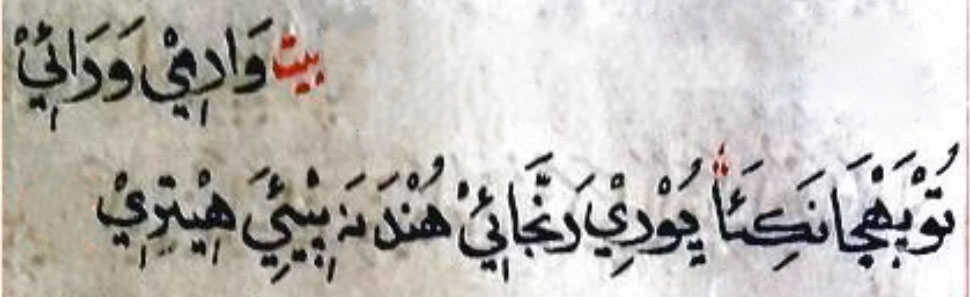 بيت وَارِفِيْ وَرَائِيْ
تُوْبَهْجَا نَكِئَا پُوْرِيْ رَنجَّائِيْ هُنْدَ نَہ بِيْئِيَ هِيْتِرِيْ